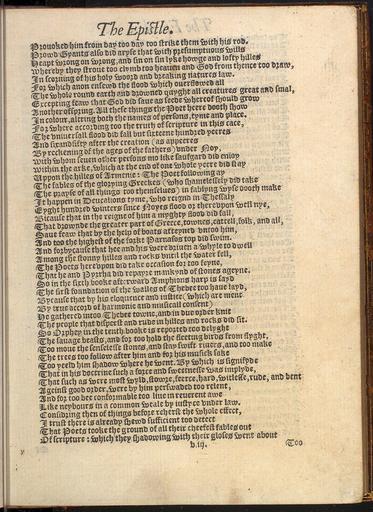 The Epistle.
Prouoked him from day too day too strike them with his rod.
Prowd Gyants also did aryse that with presumptuous wills
Heapt wrong on wrong, and sin on sin lyke howge and lofty hilles
Whereby they stroue too clymb too heauen and God from thence too draw,
In scorning of his holy woord and breaking natures law.
For which anon ensewd the flood which ouerflowed all
The whole round earth and drowned quyght all creatures great and smal,
Excepting feaw that God did saue as seede whereof should grow
Another ofspring. All these things the Poet heere dooth show
In colour, altring both the names of persons, tyme and place.
For where according too the truth of scripture in this cace,
The vniuersall flood did fall but sixteene hundred yeeres
And sixandfifty after the creation (as appeeres
By reckening of the ages of the fathers) vnder Noy,
With whom seuen other persons mo like saufgard did enioy
Within the arke, which at the end of one whole yeere did stay
Vpon the hilles of Armenie: The Poet following ay
The fables of the glorying Greekes (who shamelessely did take
The prayse of all things too themselues) in fablyng wyse dooth make
It happen in Deucalions tyme, who reignd in Thessaly
Eyght hundred winters since Noyes flood or thereupon well nye,
Bicause that in the reigne of him a myghty flood did fall,
That drownde the greater part of Greece, townes, cattell, folk, and all,
Saue feaw that by the help of boats atteyned vntoo him,
And too the highest of the forkt Parnasos top did swim.
And forbycause that hee and his were driuen a whyle to dwell
Among the stonny hilles and rocks vntill the water fell,
The Poets hereupon did take occasion for too feyne,
That he and Pyrrha did repayre mankynd of stones ageyne.
So in the sixth booke afterward Amphions harp is sayd
The first foundation of the walles of Thebee too haue layd,
Bycause that by his eloquence and iustice (which are ment
By true accord of harmonie and musicall consent)
He gathered intoo Thebee towne, and in due order knit
The people that disperst and rude in hilles and rocks did sit.
So Orphey in the tenth booke is reported too delyght
The sauage beasts, and for too hold the fleeting birds from flyght,
Too moue the senselesse stones, and stay swift riuers, and too make
The trees too follow after him and for his musick sake
Too yeeld him shadow where he went. By which is signifyde
That in his doctrine such a force and sweetnesse was implyde,
That such as were most wyld, stowre, feerce, hard, witlesse, rude, and bent
Ageinst good order, were by him perswaded too relent,
And for too bee conformable too liue in reuerent awe
Like neybours in a common weale by iustyce vnder law.
Considring then of things before reherst the whole effect,
I trust there is already shewd sufficient too detect
That Poets tooke the ground of all their cheefest fables out
Of scripture: which they shadowing with their gloses went about
b.iij. Too